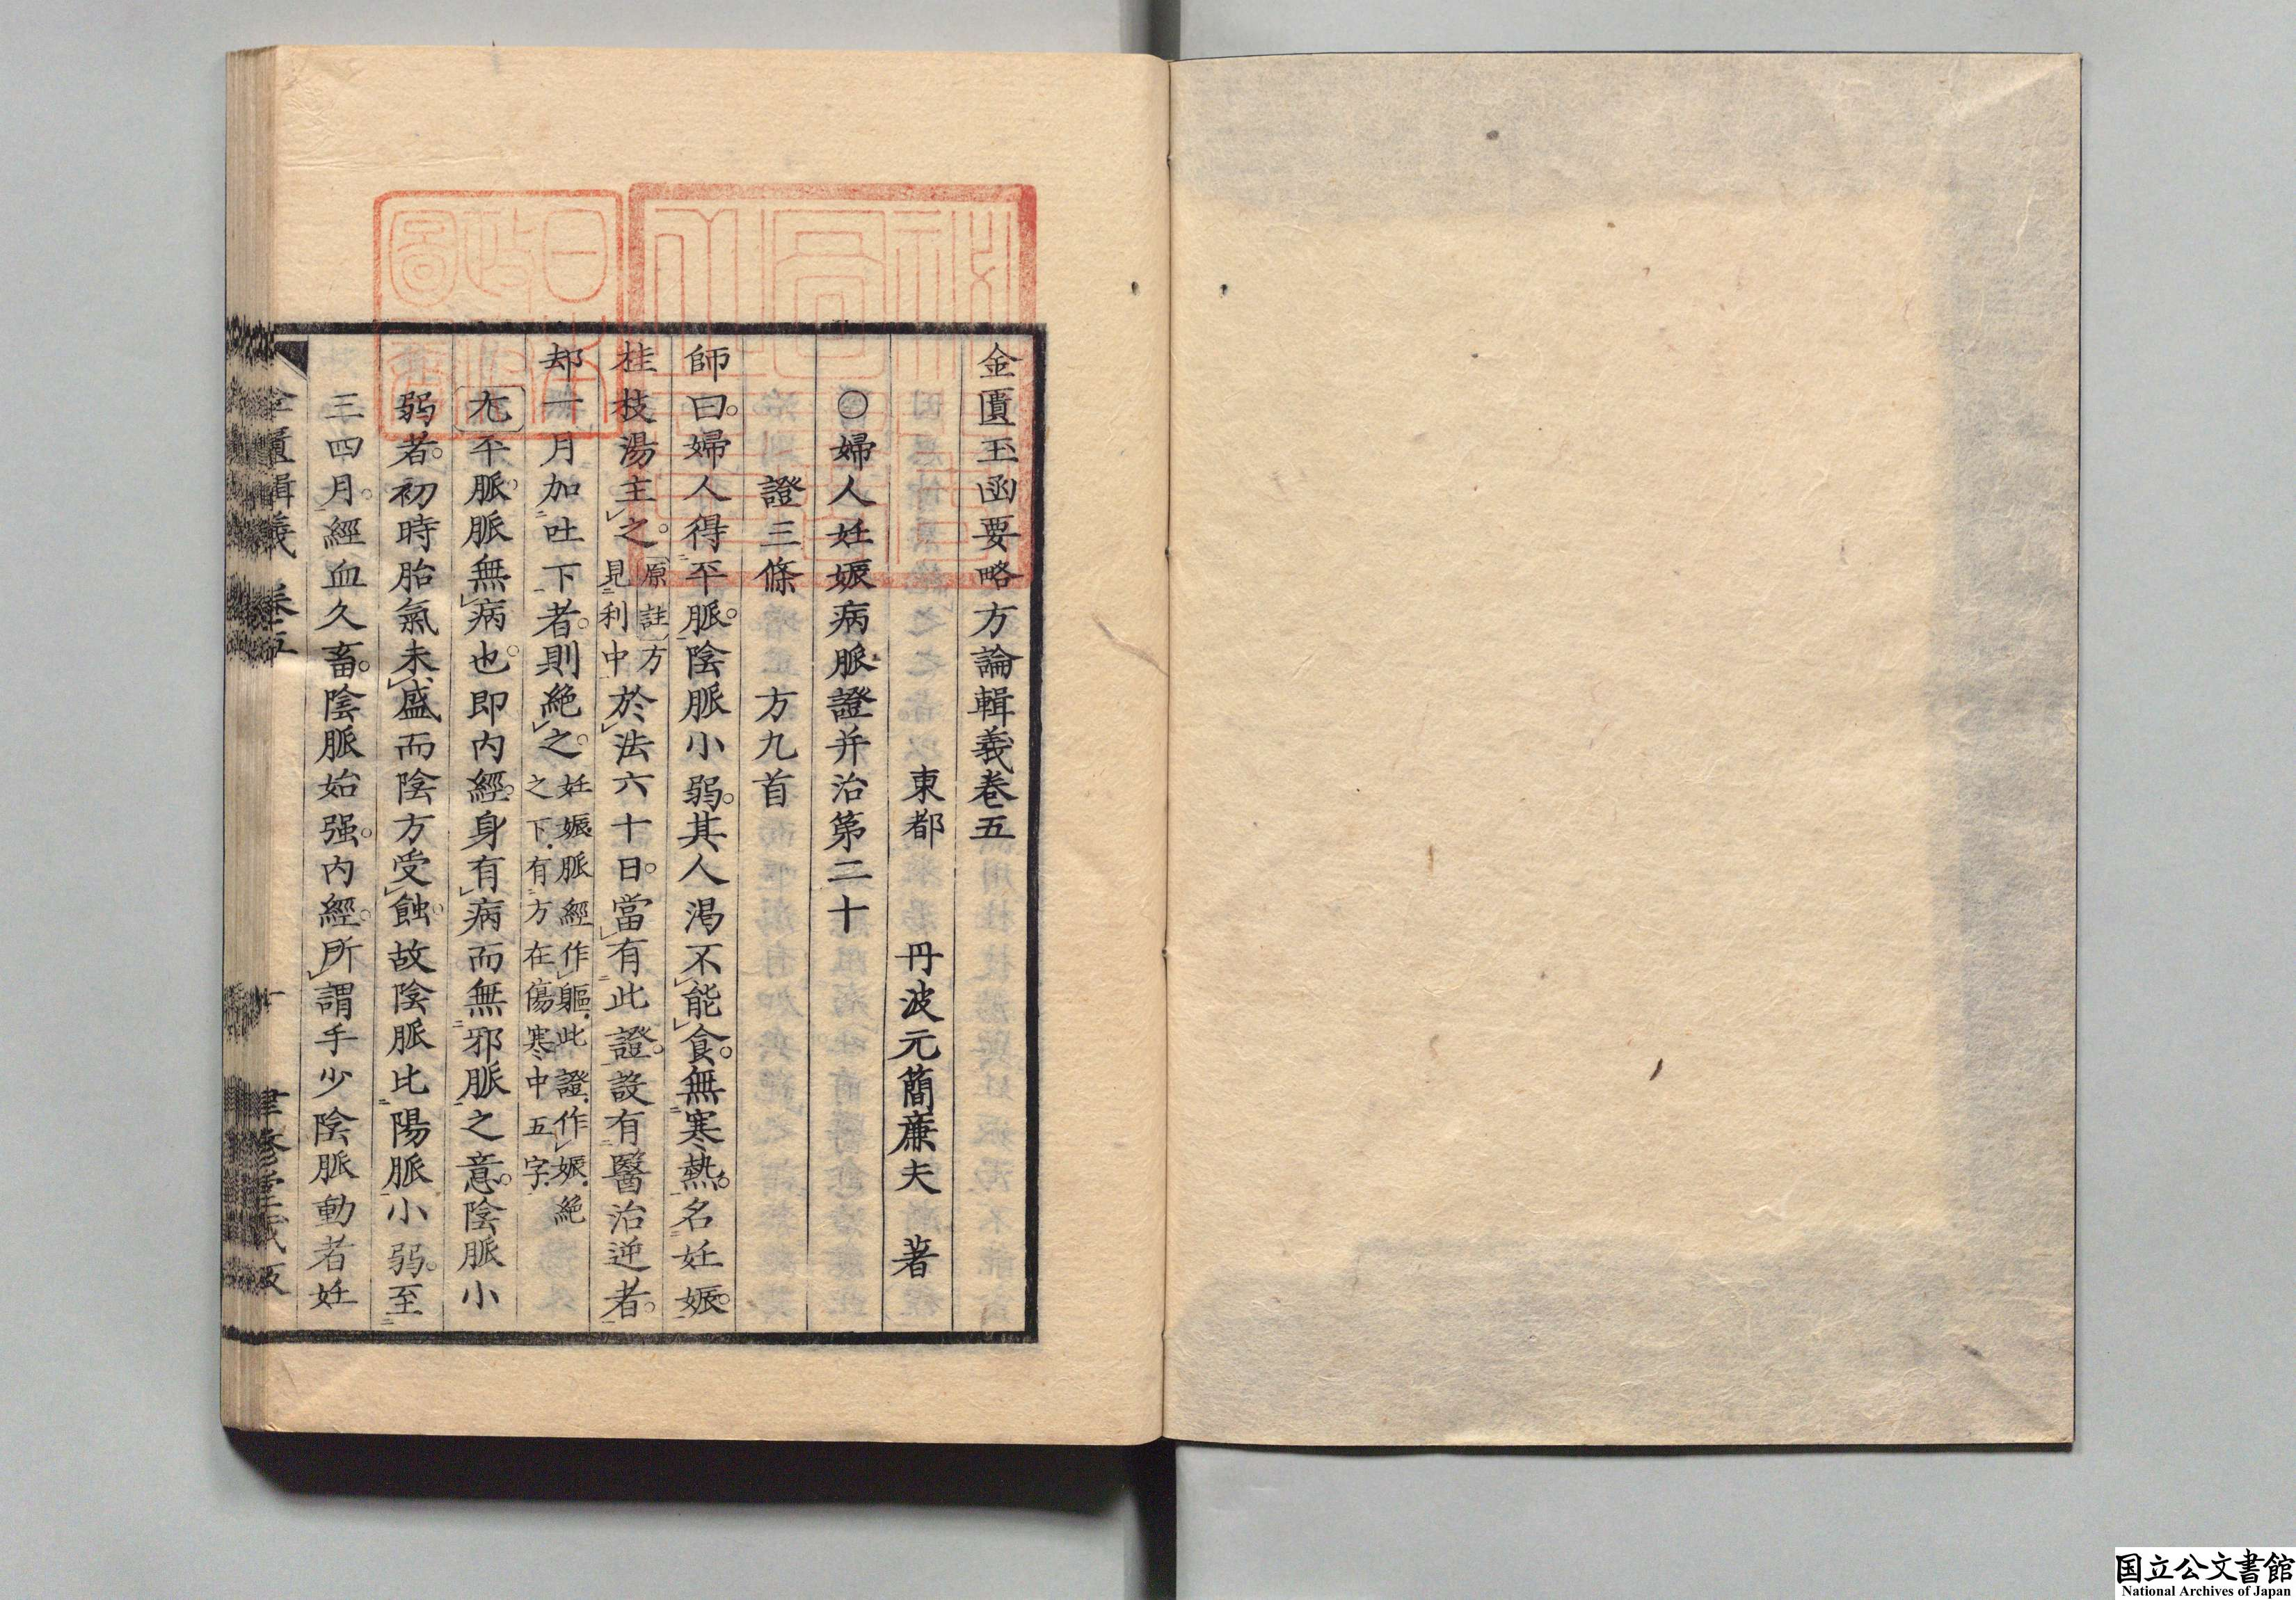 金匱玉函要略方論輯義卷五
東都 丹波元簡廉夫 著
○婦人妊娠病脈證并治第二十
證三條 方九首
師曰。婦人得平脈。陰脈小弱。其人渴不能食。無寒熱。名妊娠。
桂枝湯主之。原註方見利中於法六十日。當有此證。設有醫治逆者。
却一月加吐下者。則絕之。妊娠脈經作軀此證作娠絕之下有方在傷寒中五字
尤平脈。脈無病也。即內經。身有病而無邪脈之意。陰脈小
弱者。初時胎氣未盛而陰方受蝕。故陰脈比陽脈小弱。至
三四月。經血久畜。陰脈始强。內經。所謂手少陰脈動者妊
金匱輯義 卷五 一 聿修堂藏版
国立公文書館
National Archives of Japan